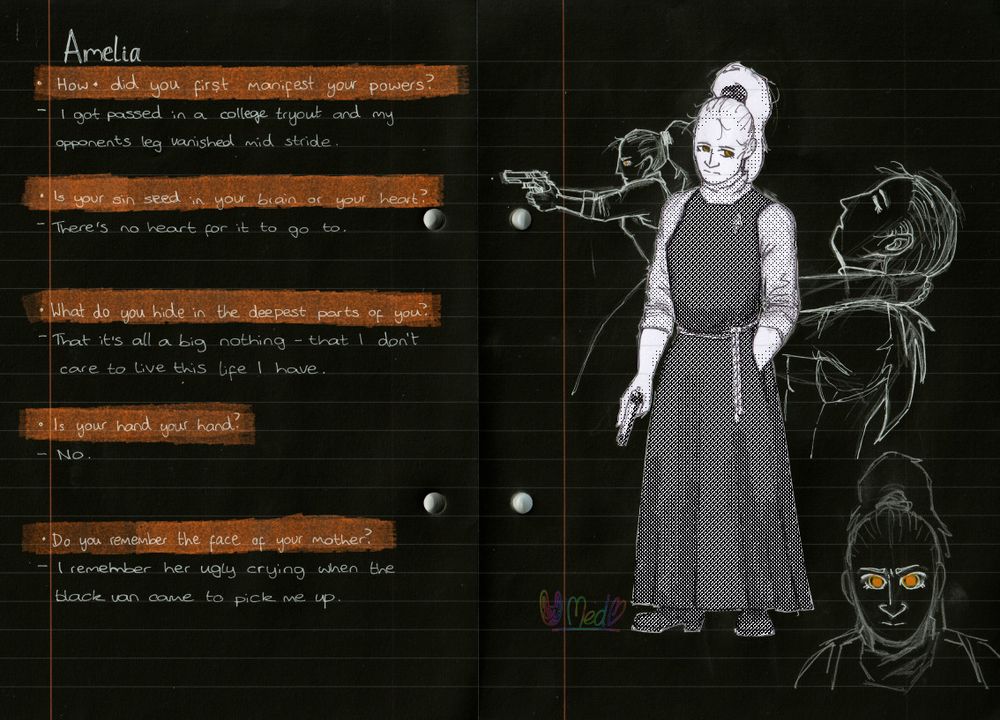 Amelia
• How• did you first manifest your powers?
- I got passed in a college tryout and my
opponents leg vanished mid stride.
• Is your sin seed in your brain or your heart?
- There's no heart for it to go to.
• What do you hide in the deepest parts of you?
- That it's all a big nothing - that I don't
care to live this life I have.
• Is your hand your hand?
- No.
• Do you remember the face of your mother?
- I remember her ugly crying when the
black van came to pick me up.
Med